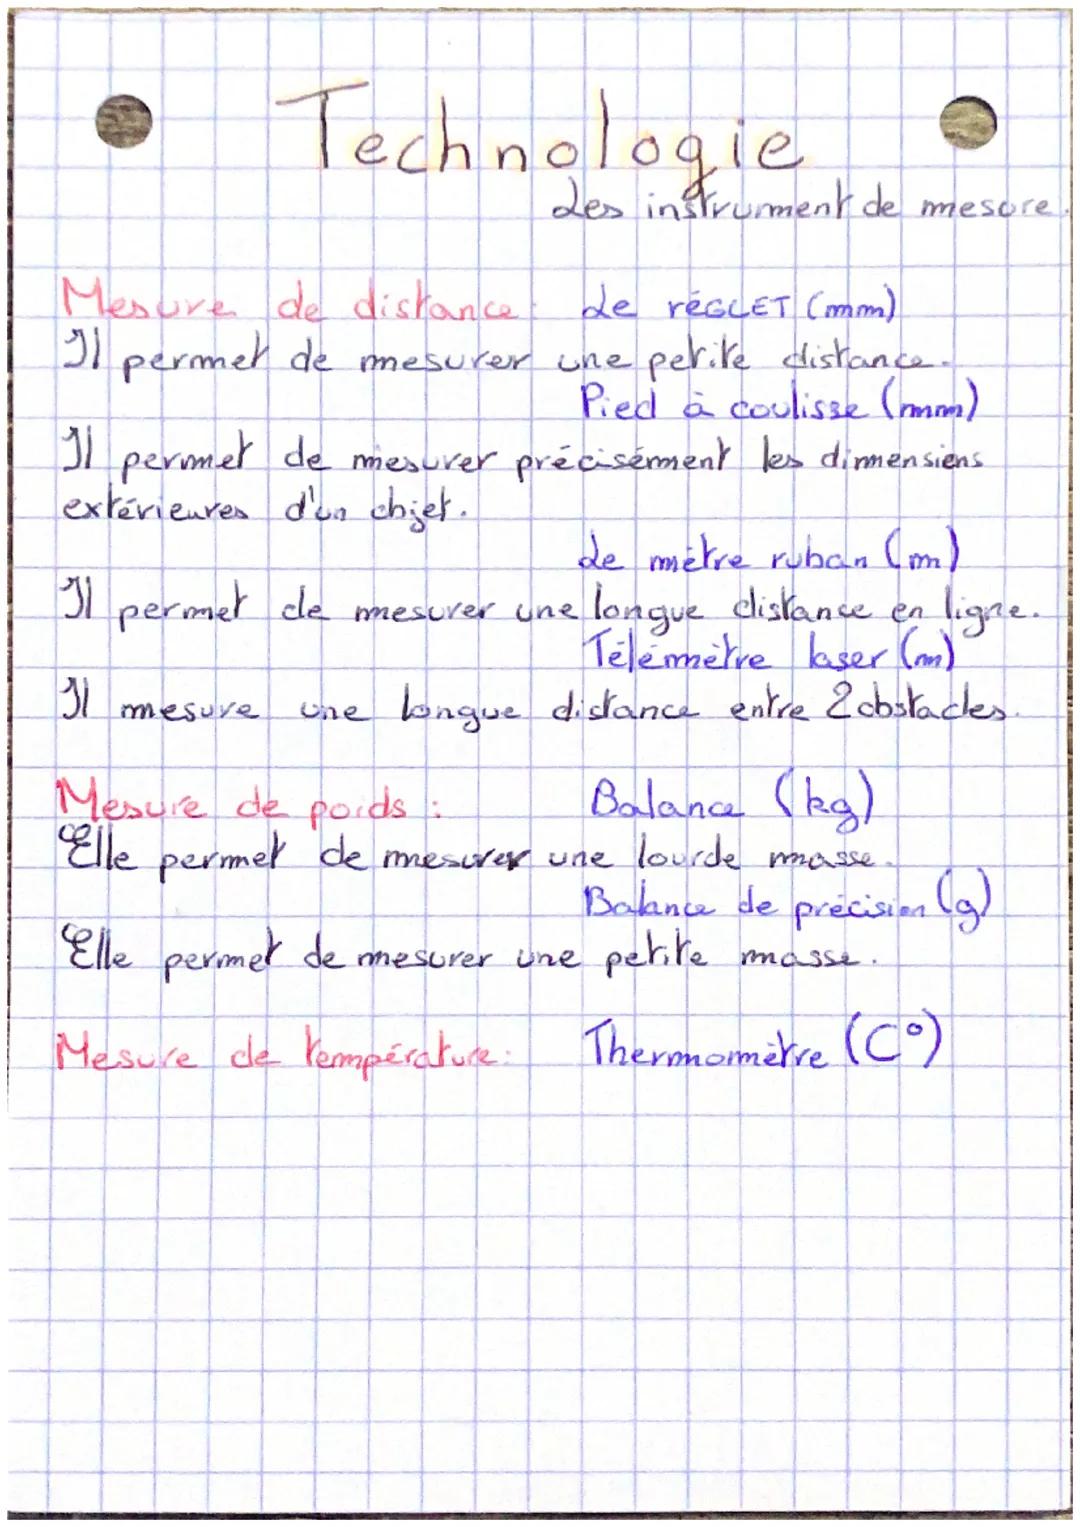 Technologie
Les instrument de mesure.
Mesure de distance: Le réGLET (mm)
Il permet de mesurer une petite distance.
Pied à coulisse (mm)
Il permet de mesurer précisément les dimensions
extérieures d'un objet.
Le mètre ruban (m)
Il permet de mesurer une longue distance en ligne.
Télémètre laser (m)
Il mesure une longue distance entre 2 obstacles.
Mesure de poids : Balance (kg)
Elle permet de mesurer une lourde masse.
Balance de précision (g)
Elle permet de mesurer une petite masse.
Mesure de température: Thermomètre (C°)